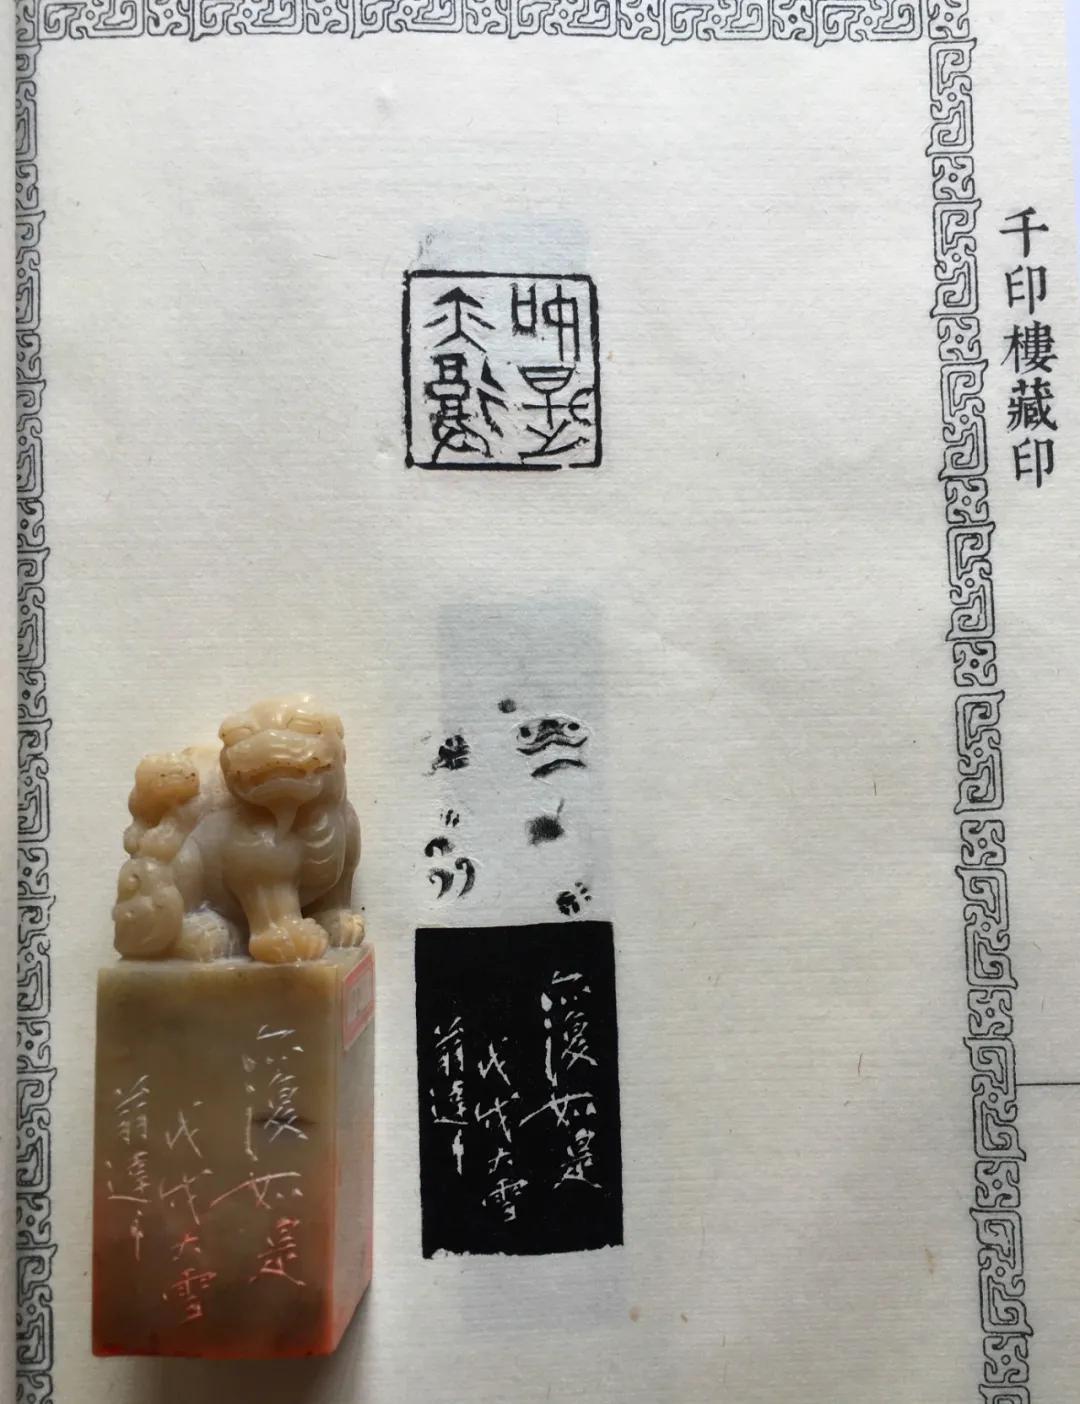 千印樓藏印
如是
無復如是
戊戌大雪
翁達
無復如是
戊戌大雪
翁達